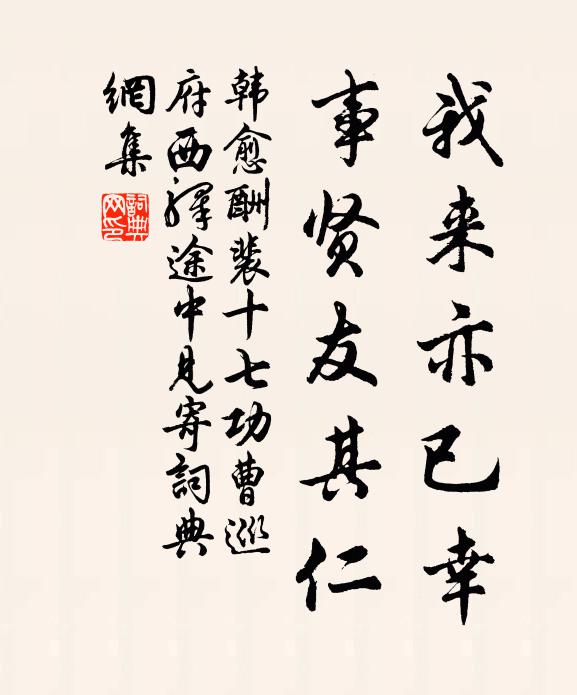 我来亦已幸
事贤友其仁
韩愈酬裴十七功曹巡
府西驿途中见寄詞典
網集
詞典网印